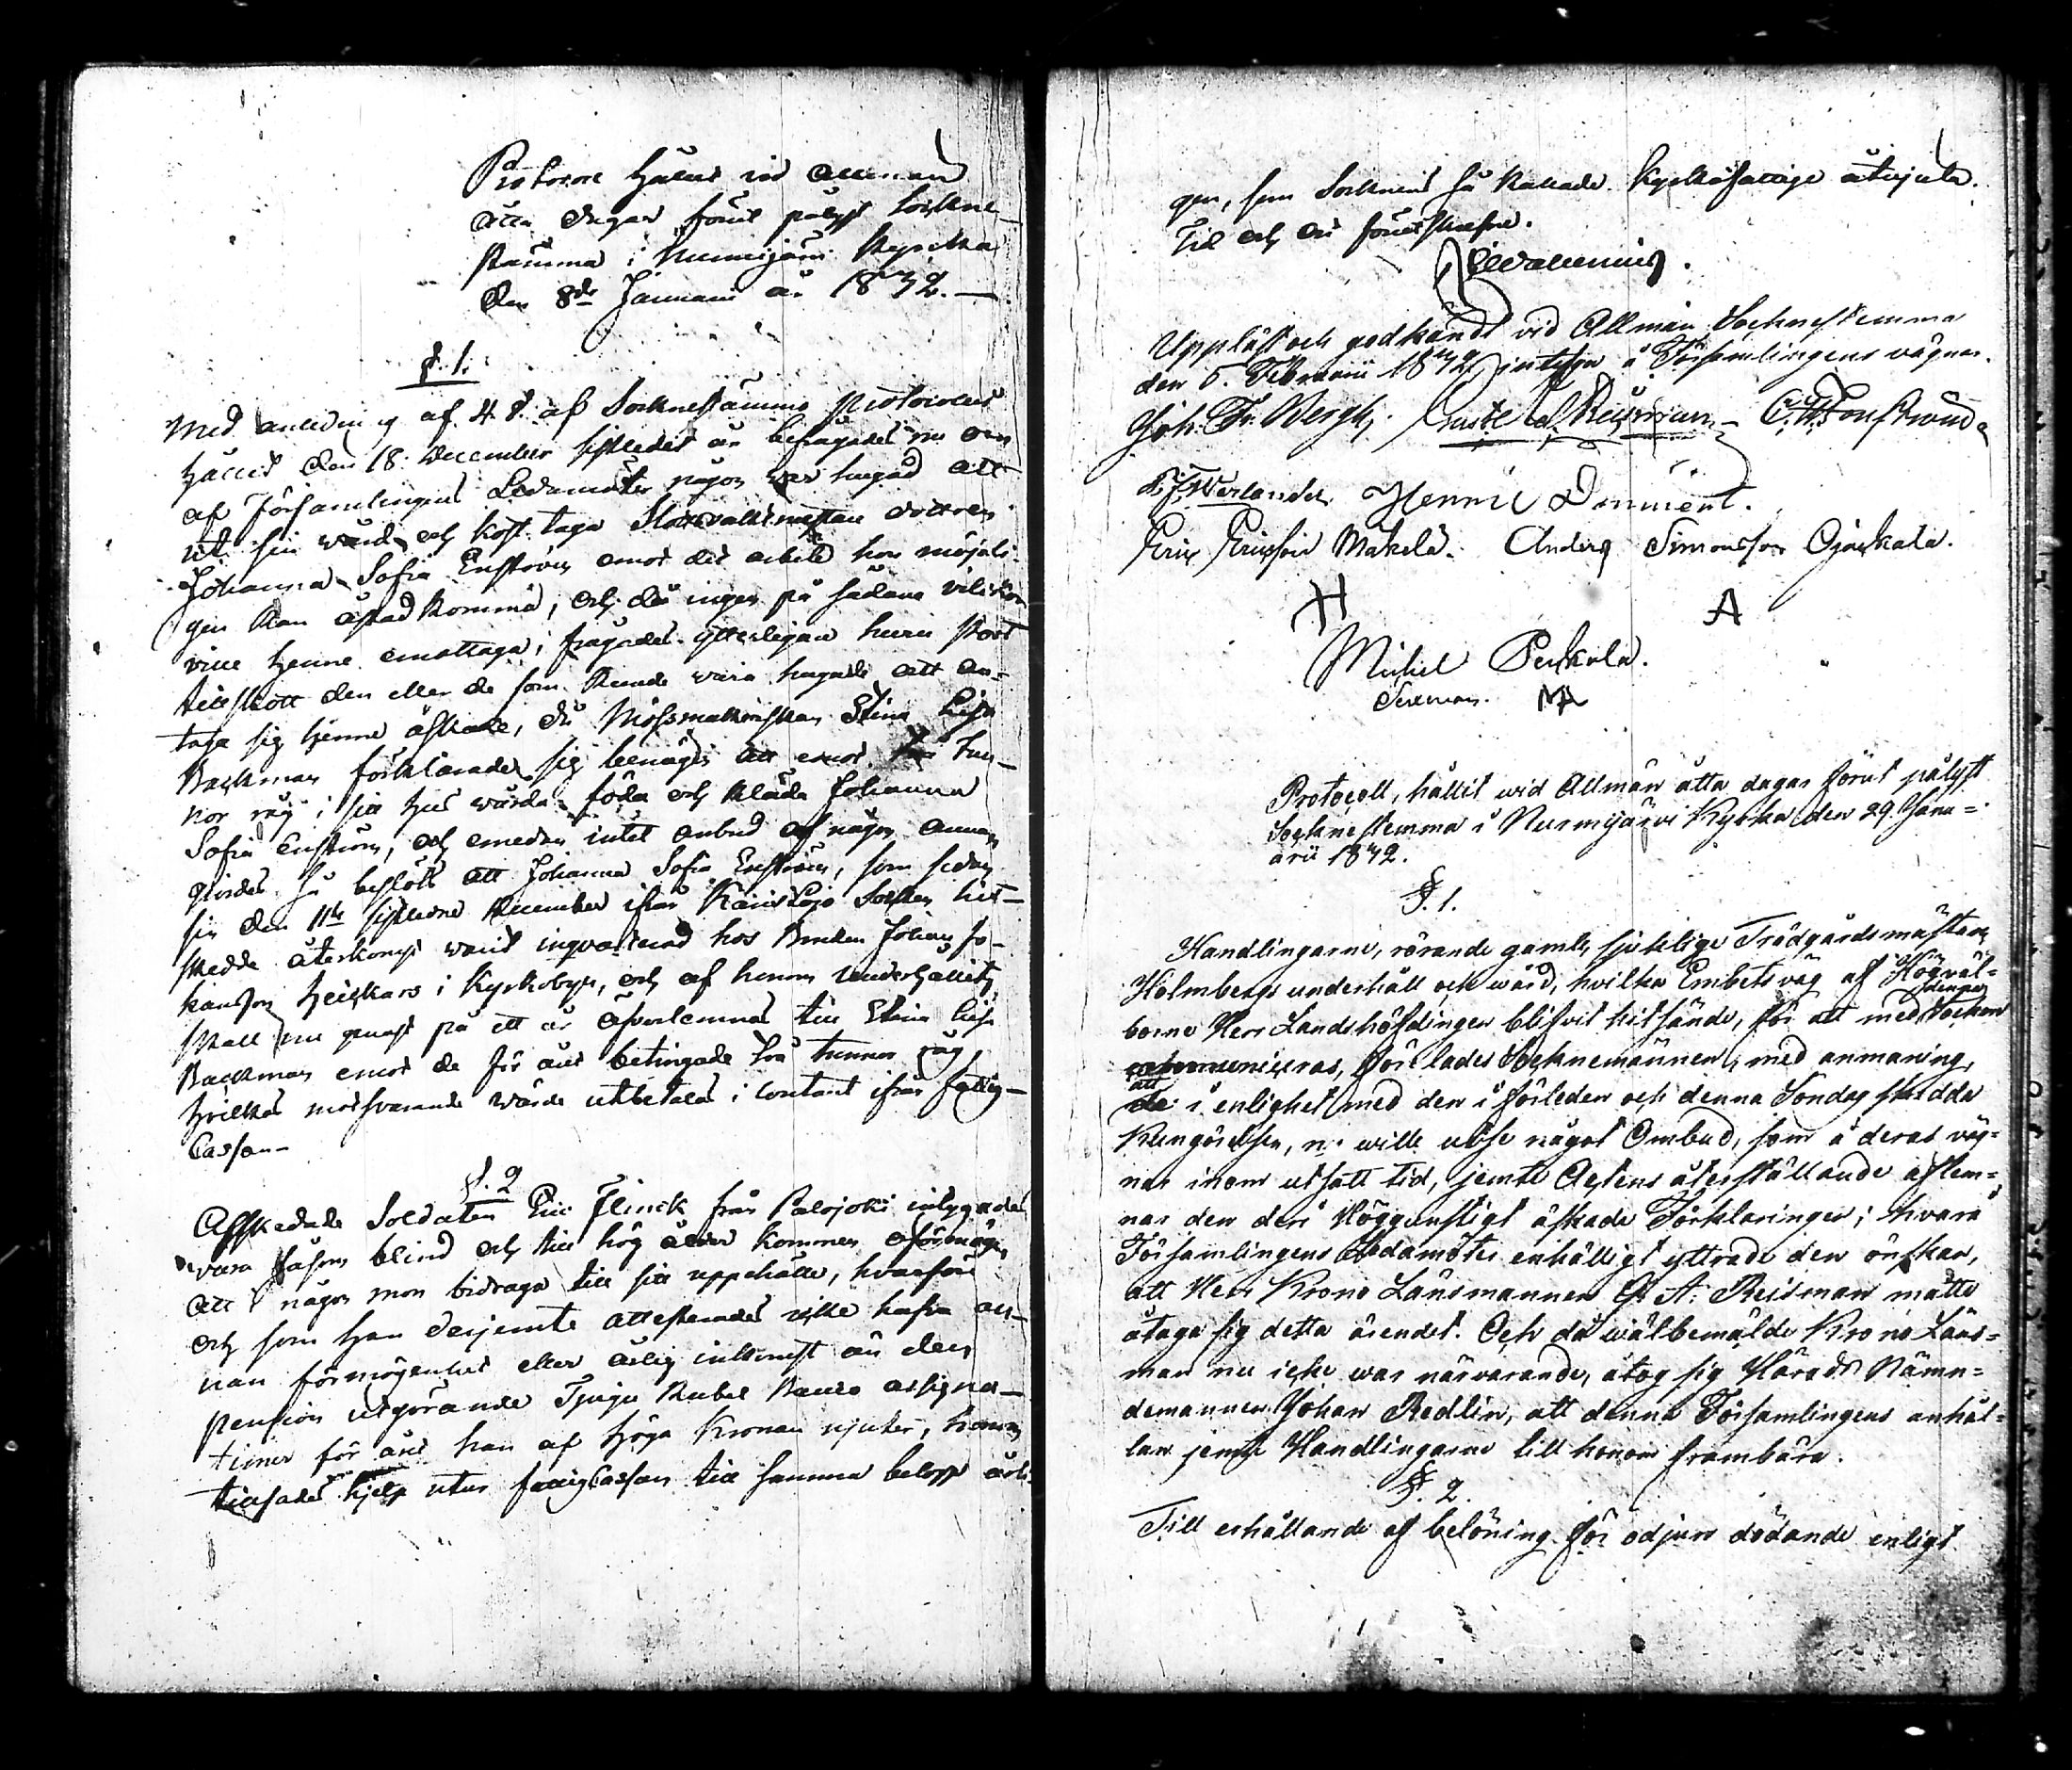 Protocoll hållit vid Allmän
åtta dagar förut pålyst Sockne-
stämma i Nurmijärvi Kyrcka
den 8de Januari år 1832.-
§. 1.
Med anledning af 4 §. af Socknestämmo Protocollet
hållit den 18 December sistledet år befrågades nu om
af Församlingens Ledamöter någon var hugad att
uti sin vård och kost taga Slottsvaktmästare dottren
Johanna Sofia Enström emot det arbete hon möjeli-
gen kan åstadkomma, och då ingen på sådana vilckor
ville henne emottaga, frågades ytterligare huru stort
tillskott den eller de som kunde vara hugade att an-
taga sig henne äskade, då Mössmakerskan Stina Lisa
Backman förklarade sig benägen att emot två tun-
nor råg i sitt hus vårda föda och kläda Johanna
Sofia Enström, och emedan intet anbud af någon annan
gjordes så beslöts att Johanna Sofia Enström, som sedan
sin den 11te sistledne December ifrån Karislojo Socken hit-
skedde återkomst varit inqvarterad hos Bonden Johan Jo-
hansson Heickars i Kyrkobyn, och af honom underhållits,
skall nu genast på ett år öfverlemnas till Stina Lisa
Backman emot de för året betingade två tunnor råg,
hvilkas motsvarande värde utbetalas i contant ifrån fattig-
Cassan-
§. 2
Afskedade Soldaten Eric Flinck från Palojoki intygades
vara såsom blind och till hög ålder kommen oförmögen
att i någon mon bidraga till sitt uppehälle, hvarföre
och som han derjemte attesterades icke hafva an-
nan förmögenhet eller årlig inkomst än den
pension utgörande Tjugu Rubel Banco assigna-
tioner för året han af höga Kronan njuter, honom
tillsades hjelp utur fattigCassan till samma belopp årli-
gen, som Socknens så kallade Kyrkofattige åtnjuta.
Tid och ort förutskrefne.
Uppläst och godkändt vid Allmän Socknestemma
den 5. Februarii 1832, intyga å Församlingens vägnar.
Joh. Fr. Bergh, Gustaf Ad. Reisman- C. W. Tonstrand
Henric Dimment.
Eric Ericsson Makela. Anders Simonsson Ojackala.
H A
Michel Perkola.
Sexman. MA
Protocoll, hållit wid Allmän åtta dagar förut pålyst
Socknestemma i Nurmijärvi Kyrka den 29 Janu=
arii 1832.
§. 1.
Handlingarne, rörande gamle sjuklige Trädgårdsmästaren
Holmbergs underhåll och wård, hvilka Embetsväg af Högväl=
borne Herr Landshöfdingen blifvit hitsände, för att med Socken
communiceras, förelades Socknemännen, med anmaning,
att
de i enlighet med den i förleden och denna Söndag skedda
Kungörelsen, nu wille utse något Ombud, som å deras väg=
nar inom utsatt tid, jemte Actens återställande aflem=
nar den deri Höggunstigt äskade Förklaringen; hvarå
Församlingens Ledamöter enhälligt yttrade den önskan,
att Herr Krono Länsmannen G. A. Reisman måtte
åtaga sig detta ärendet. Och då wälbemälde Krono Läns=
man nu icke war närvarande, åtog sig Härads Nämn=
demannen Johan Redlin, att denna Församlingens anhål=
lan jemte Handlingarne till honom frambära.
§. 2.
Till erhållande af belöning för odjurs dödande enligt